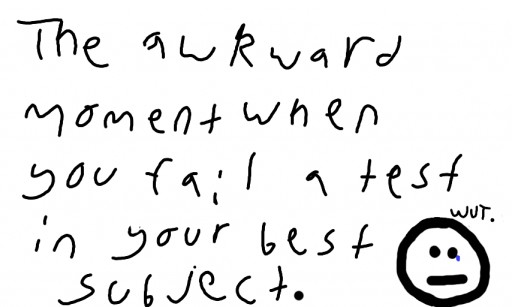 The awkward
moment when
you fail a test
in your best
subject.
WUT.